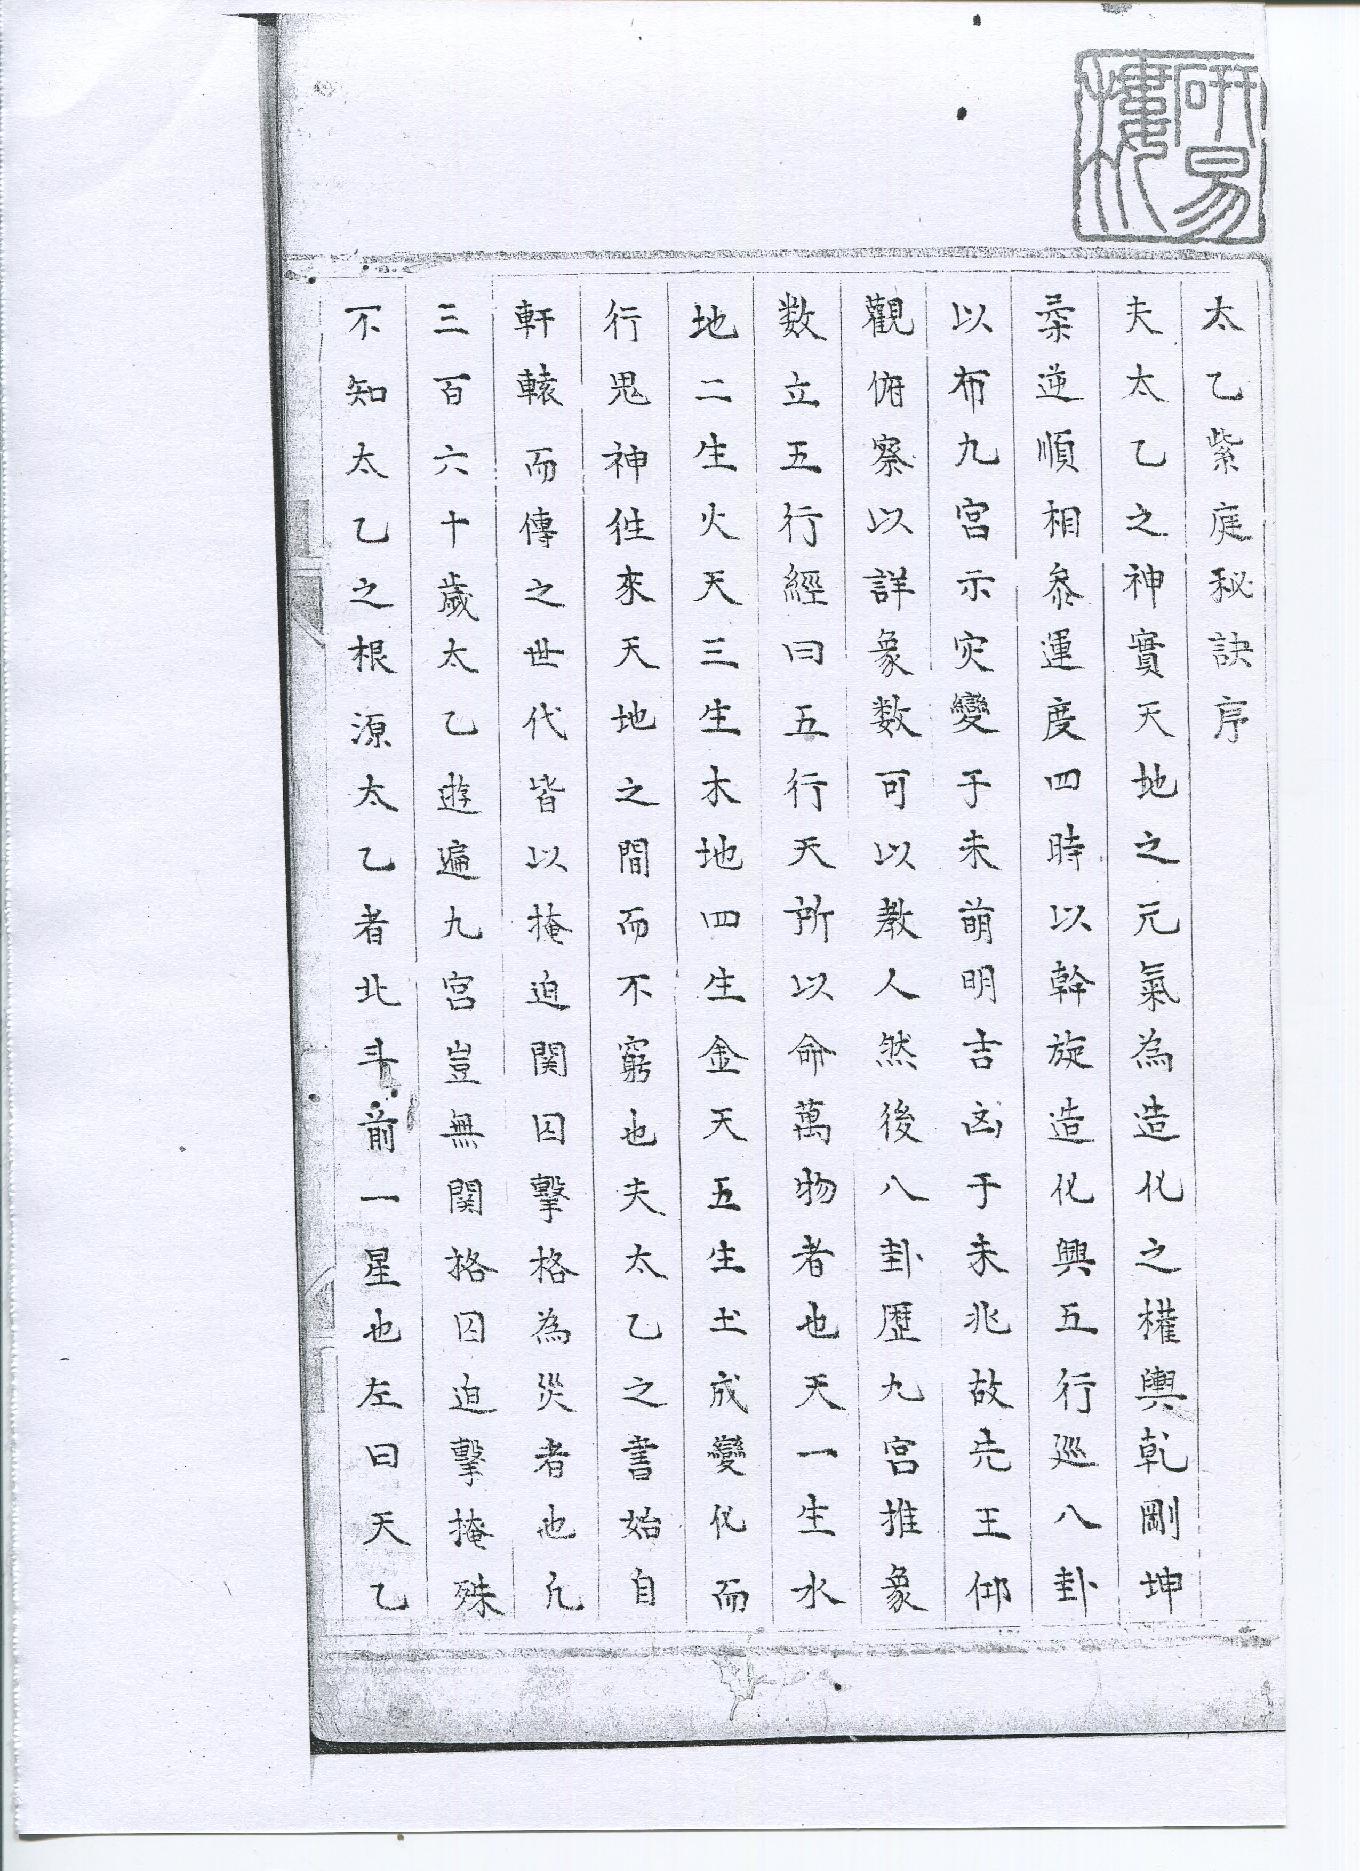 研易樓
太乙紫庭秘訣序
夫太乙之神實天地之元氣為造化之權輿乾剛坤
柔逆順相叅運度四時以斡旋造化興五行廵八卦
以布九宮示灾變于未萌明吉凶于未兆故先王仰
觀俯察以詳象数可以教人然後八卦歷九宮推象
数立五行經曰五行天所以命萬物者也天一生水
地二生火天三生木地四生金天五生土成變化而
行鬼神徃來天地之間而不窮也夫太乙之書始自
軒轅而傳之世代皆以掩迫関囚擊格為災者也凢
三百六十歲太乙遊遍九宮豈無関格囚迫擊掩殊
不知太乙之根源太乙者北斗前一星也左曰天乙